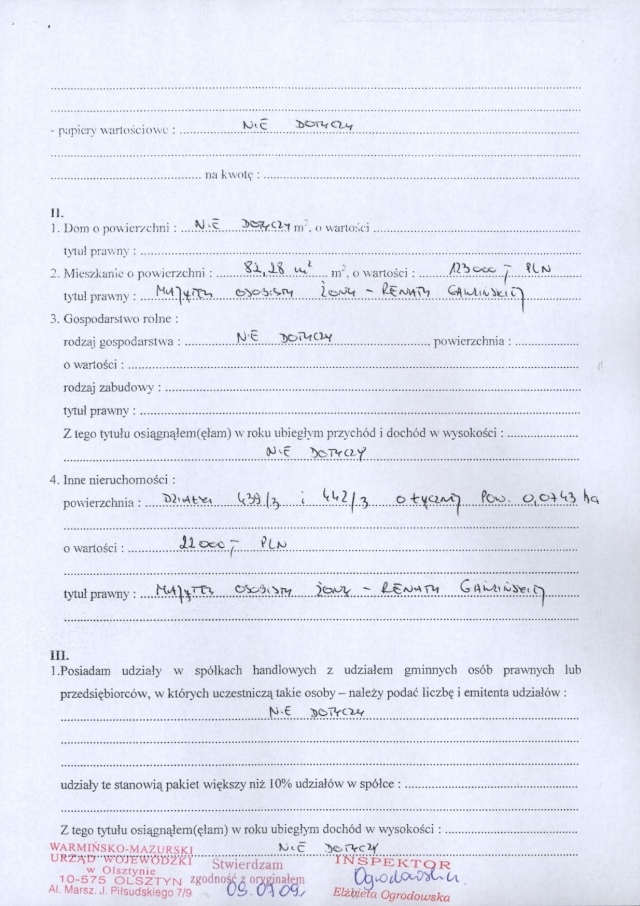 - papiery wartościowe : NIE DOTYCZY
na kwotę :
II.
1. Dom o powierzchni : NIE DOTYCZY m², o wartości
tytuł prawny :
2. Mieszkanie o powierzchni : 82,28 m² m², o wartości : 123 000,- PLN
tytuł prawny : MAJĄTEK OSOBISTY ŻONY - RENATY GAWLIŃSKIEJ
3. Gospodarstwo rolne :
rodzaj gospodarstwa : NIE DOTYCZY powierzchnia :
o wartości :
rodzaj zabudowy :
tytuł prawny :
Z tego tytułu osiągnąłem(ęłam) w roku ubiegłym przychód i dochód w wysokości :
NIE DOTYCZY
4. Inne nieruchomości :
powierzchnia : DZIAŁKI 439/3 i 442/3 o łącznej Pow. 0,0743 ha
o wartości : 22 000,- PLN
tytuł prawny : MAJĄTEK OSOBISTY ŻONY - RENATY GAWLIŃSKIEJ
III.
1.Posiadam udziały w spółkach handlowych z udziałem gminnych osób prawnych lub
przedsiębiorców, w których uczestniczą takie osoby – należy podać liczbę i emitenta udziałów :
NIE DOTYCZY
udziały te stanowią pakiet większy niż 10% udziałów w spółce :
Z tego tytułu osiągnąłem(ęłam) w roku ubiegłym dochód w wysokości :
NIE DOTYCZY
WARMIŃSKO-MAZURSKI
URZĄD WOJEWÓDZKI
w Olsztynie
10-575 OLSZTYN
Al. Marsz. J. Piłsudskiego 7/9
Stwierdzam
zgodność z oryginałem
INSPEKTOR
Ogrodowska
Elżbieta Ogrodowska